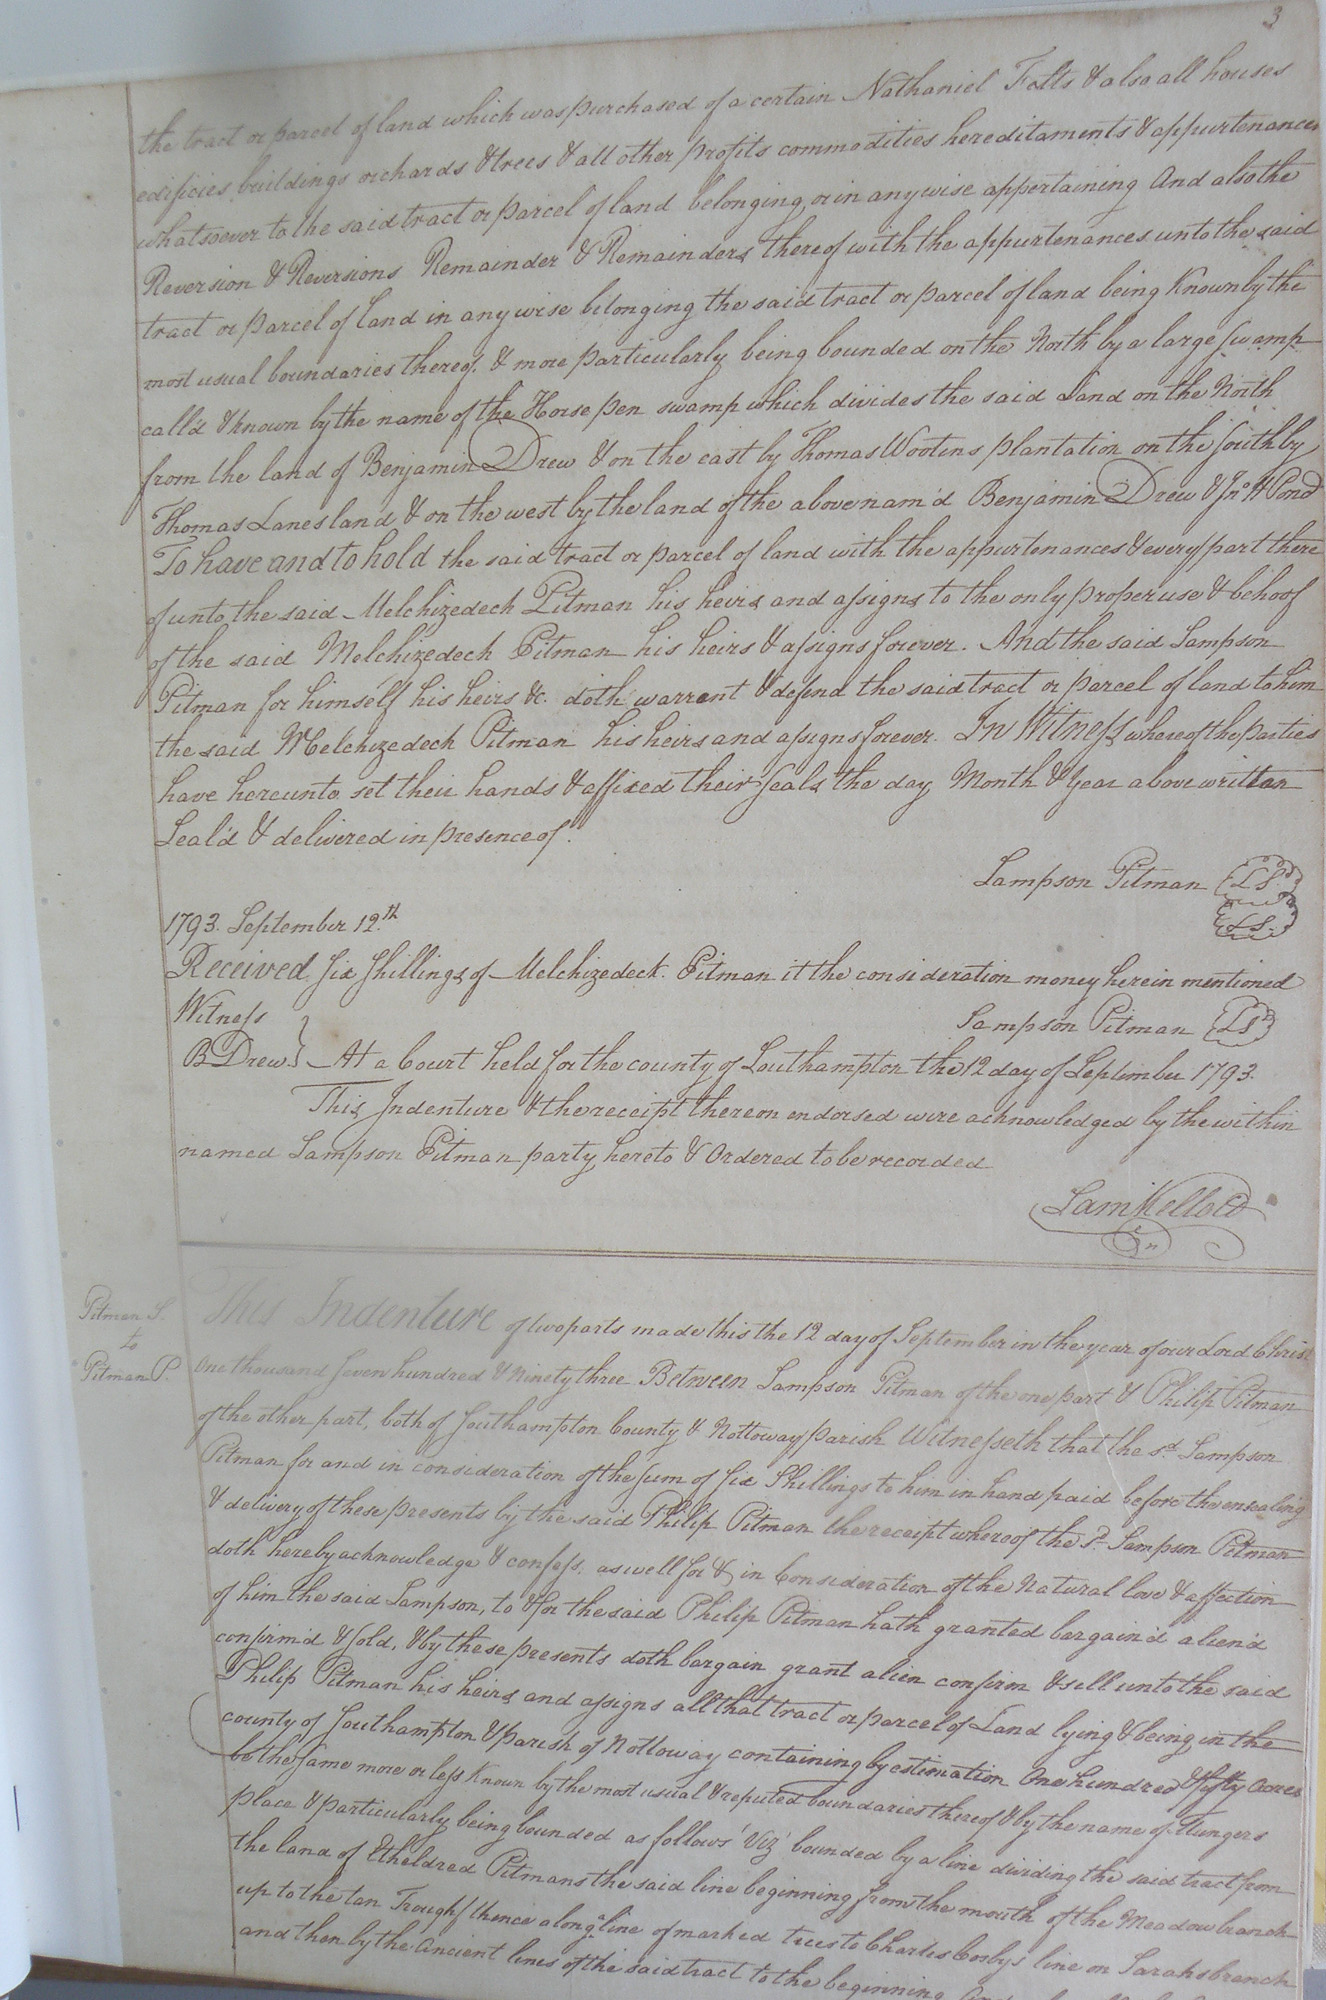 3
the tract or parcel of land which was purchased of a certain Nathaniel Felts & also all houses
edificies buildings orchards & trees & all other profits commodities hereditaments & appurtenances
whatsoever to the said tract or parcel of land belonging or in anywise appertaining And also the
Reversion & Reversions Remainder & Remainders thereof with the appurtenances unto the said
tract or parcel of Land in any wise belonging the said tract or parcel of land being Known by the
most usual boundaries thereof, & more particularly being bounded on the North by a large Swamp
call'd & known by the name of the Horse pen swamp which divides the said Land on the North
from the land of Benjamin Drew & on the east by Thomas Wootens plantation on the South by
Thomas Lanes land & on the west by the land of the above nam'd Benjamin Drew & Jno. H Pond
To have and to hold the said tract or parcel of land with the appurtenances & every part there
of unto the said Melchizedech Pitman his heirs and assigns to the only proper use & behoof
of the said Melchizedech Pitman his heirs & assigns forever. And the said Sampson
Pitman for himself his heirs &c. doth warrent & defend the said tract or parcel of land to him
the said Melchizedech Pitman his heirs and assigns forever. In Witness whereof the parties
have hereunto set their hands & affixed their Seals the day Month & Year above written
Seal'd & delivered in presence of.
Sampson Pitman LS
LS.
1793. September 12.th
Received Six Shillings of Melchizedeck. Pitman it the consideration money herein mentioned
Witness
Sampson Pitman LS
B Drew } At a Court held for the county of Southampton the 12 day of September 1793.
This Indenture & the receipt thereon endorsed were acknowledged by the within
named Sampson Pitman party hereto & Ordered to be recorded
Sam Kello Cl
Pitman S.
to
Pitman P.
This Indenture of two parts made this the 12 day of September in the year of our Lord Christ
One thousand Seven hundred & Ninety three Between Sampson Pitman of the one part & Philip Pitman
of the other part, both of Southampton County & Nottoway parish Witnesseth that the sd. Sampson
Pitman for and in consideration of the Sum of Six Shillings to him in hand paid before the ensealing
& delivery of these presents by the said Philip Pitman the receipt whereof the sd. Sampson Pitman
doth hereby acknowledge & confess, as well for & in Consideration of the Natural love & affection
of him the said Sampson, to & for the said Philip Pitman hath granted bargain'd alien'd
confirm'd & sold, & by these presents doth bargain grant alien confirm & sell unto the said
Philip Pitman his heirs and assigns all that tract or parcel of Land lying & being in the
county of Southampton & parish of Nottoway containing by estimation One hundred & fifty Acres
be the same more or less Known by the most usual & reputed boundaries thereof & by the name of
place & particularly being bounded as follows 'Viz' bounded by a line dividing the said tract from
the land of Etheldred Pitmans the said line beginning from the mouth of the Meadow branch
up to the tan Trough thence along a line of marked trees to Charles Cosbys line on Sarahs branch
and then by the Ancient lines of the said tract to the beginning